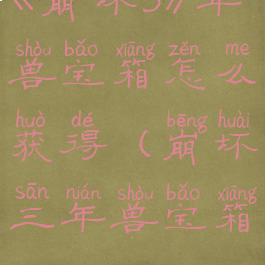 《崩坏3》年
shòu bǎo xiāng zěn me
兽宝箱怎么
huò dé bēng huài
获得（崩坏
sān nián shòu bǎo xiāng
三年兽宝箱